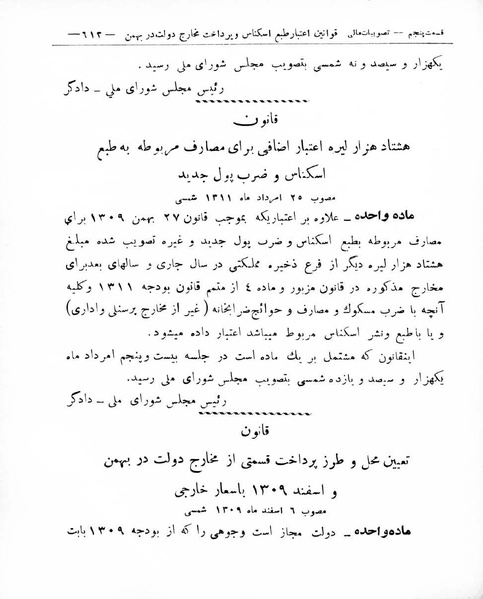 قسمت پنجم -- تصویبات مالی   قوانین اعتبار طبع اسکناس و پرداخت مخارج دولت در بهمن   — ٦١٢ —
یکهزار و سیصد و نه شمسی بتصویب مجلس شورای ملی رسید .
رئیس مجلس شورای ملی ـ دادگر
قانون
هشتاد هزار لیره اعتبار اضافی برای مصارف مربوطه به طبع
اسکناس و ضرب پول جدید
مصوب ۲۵ امرداد ماه ۱۳۱۱ شمسی
ماده واحده ـ علاوه بر اعتباریکه بموجب قانون ۲۷ بهمن ۱۳۰۹ برای
مصارف مربوطه بطبع اسکناس و ضرب پول جدید و غیره تصویب شده مبلغ
هشتاد هزار لیره دیگر از فرع ذخیره مملکتی در سال جاری و سالهای بعد برای
مخارج مذکوره در قانون مزبور و ماده ٤ از متمم قانون بودجه ۱۳۱۱ و کلیه
آنچه با ضرب مسکوک و مصارف و حوائج ضرابخانه ( غیر از مخارج پرسنلی و اداری )
و یا با طبع و نشر اسکناس مربوط میباشد اعتبار داده میشود.
اینقانون که مشتمل بر یك ماده است در جلسه بیست و پنجم امرداد ماه
یکهزار و سیصد و یازده شمسی بتصویب مجلس شورای ملی رسید.
رئیس مجلس شورای ملی ـ دادگر
قانون
تعیین محل و طرز پرداخت قسمتی از مخارج دولت در بهمن
و اسفند ۱۳۰۹ باسعار خارجی
مصوب ٦ اسفند ماه ۱۳۰۹ شمسی
ماده واحده ـ دولت مجاز است وجوهی را که از بودجه ۱۳۰۹ بابت